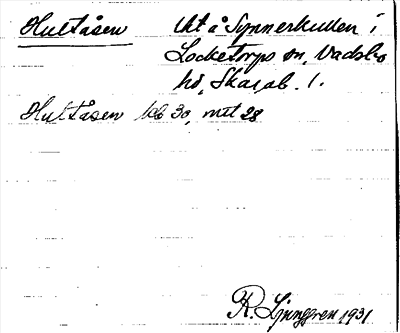 Hultåsen   Utt å Symnerkullen i
Locketorps sn, Vadsbo
hd, Skarab. l.
Hultåsen   30,   28
R. Ljunggren 1931